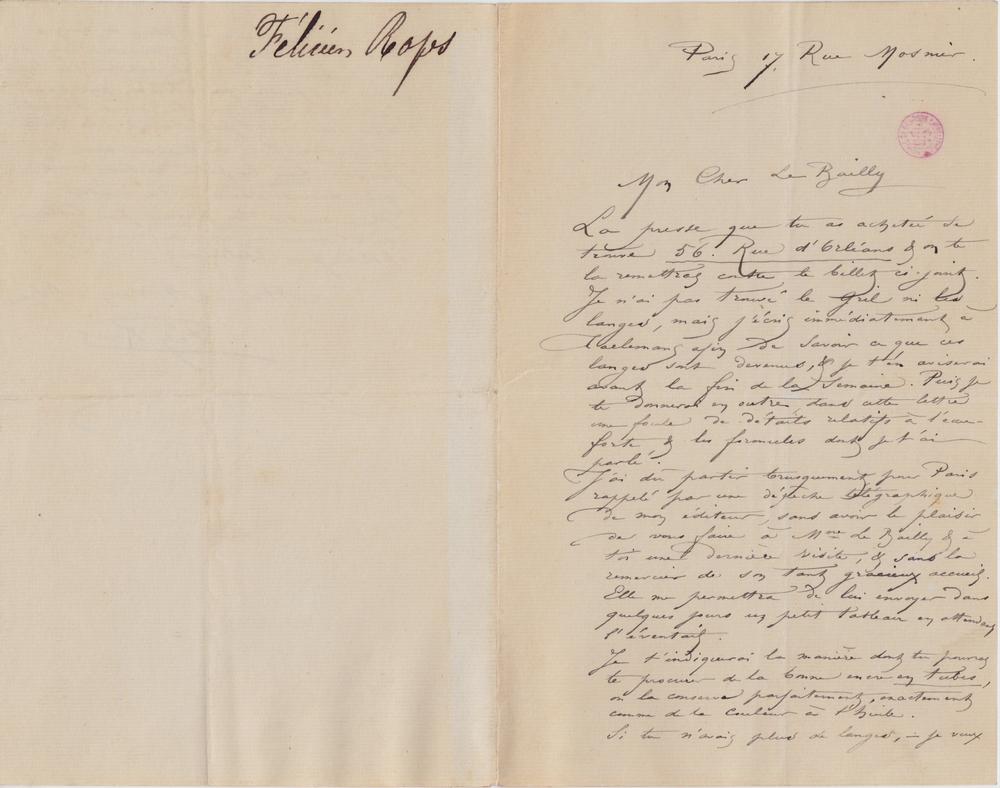 Félicien Rops
Paris 17 Rue Mosnier.
Mon Cher Le Bailly
La presse que tu as achetée se
trouve 56. Rue d'Orléans & on te
la remettra contre le billet ci-joint.
Je n'ai pas trouvé le Gril ni les
langes, mais j'écris immédiatement à
Taelemans afin de savoir ce que ces
langes sont devenus, & je t'en aviserai
avant la fin de la semaine. Puis je
te donnerai en outre dans cette lettre
une foule de détails relatifs à l'eau-
forte & les formules dont je t'ai
parlé.
J'ai dû partir brusquement pour Paris
rappelé par une dépêche télégraphique
de mon éditeur, sans avoir le plaisir
de vous faire à Mme Le Bailly & à
toi une dernière visite, & sans la
remercier de son tant gracieux accueil.
Elle me permettra de lui envoyer dans
quelques jours un petit tableau en attendant
l'éventail.
Je t'indiquerai la manière dont tu pourras
te procurer de la bonne encre en tubes,
on la conserve parfaitement, exactement
comme de la couleur à l'huile.
Si tu n'avais plus de langes, – je veux